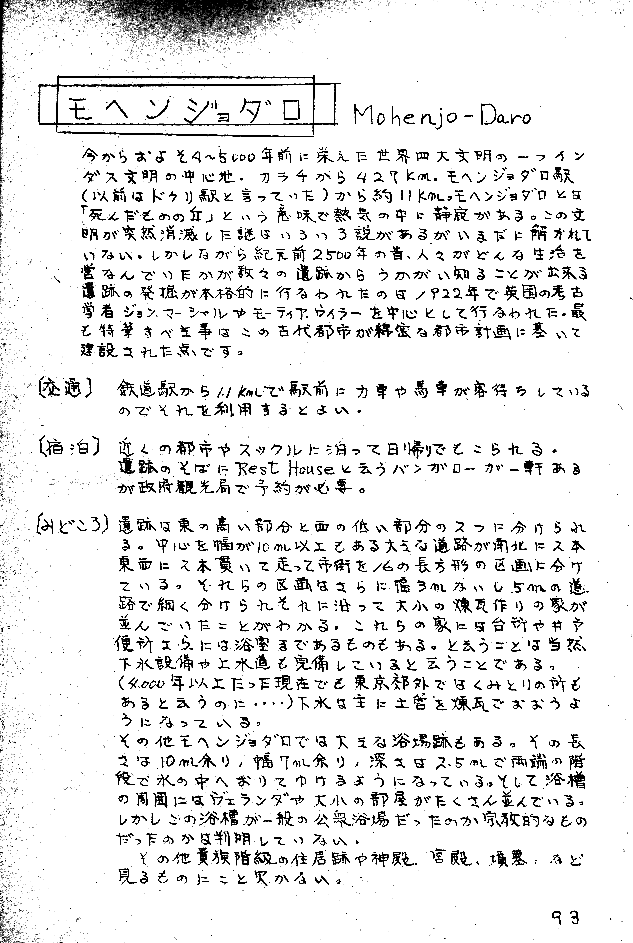 モヘンジョダロ Mohenjo-Daro
今からおよそ4~5000年前に栄えた世界四大文明の一つイン
ダス文明の中心地。カラチから427km。モヘンジョダロ駅
(以前はドクリ駅と言っていた)から約11km。モヘンジョダロとは
「死んだものの丘」という意味で熱気の中に静寂がある。この文
明が突然消滅した謎はいろいろ説があるがいまだに解かれて
いない。しかしながら紀元前2500年の昔、人々がどんな生活を
営なんでいたかが数々の遺跡からうかがい知ることが出来る
遺跡の発掘が本格的に行なわれたのは1922年で英国の考古
学者ジョン.マーシャルやモーティア.ウイラーを中心として行なわれた。最
も特筆すべき事はこの古代都市が綿密な都市計画に基いて
建設された点です。
〔交通〕 鉄道駅から11kmで駅前に力車や馬車が客待ちしている
のでそれを利用するとよい。
〔宿泊〕 近くの都市やスックルに泊って日帰りでもこられる。
遺跡のそばにRest Houseと云うバンガローが一軒ある
が政府観光局で予約が必要。
〔みどころ〕遺跡は東の高い部分と西の低い部分の2つに分けられ
る。中心を幅が10m以上もある大きな道路が南北に2本
東西に2本貫いて走って市街を16の長方形の区画に分け
ている。それらの区画はさらに幅3mないし5mの道
路で細く分けられそれに沿って大小の煉瓦作りの家が
並んでいたことがわかる。これらの家には台所や井戸
便所さらには浴室まであるものもある。と云うことは当然
下水設備や上水道も完備していると云うことである。
(4.000年以上たった現在でも東京郊外ではくみとりの所も
あると云うのに‥‥)下水は主に土管を煉瓦でおおうよ
うになっている。
その他モヘンジョダロでは大きな浴場跡もある。その長
さは10m余り、幅7m余り、深さは2.5mで両端の階
段で水の中へおりてゆけるようになっている。そして浴槽
の周囲にはヴェランダや大小の部屋がたくさん並んでいる。
しかしこの浴槽が一般の公衆浴場だったのか宗教的なもの
だったのかは判明していない。
その他貴族階級の住居跡や神殿、宮殿、墳墓、など
見るものにこと欠かない。
93